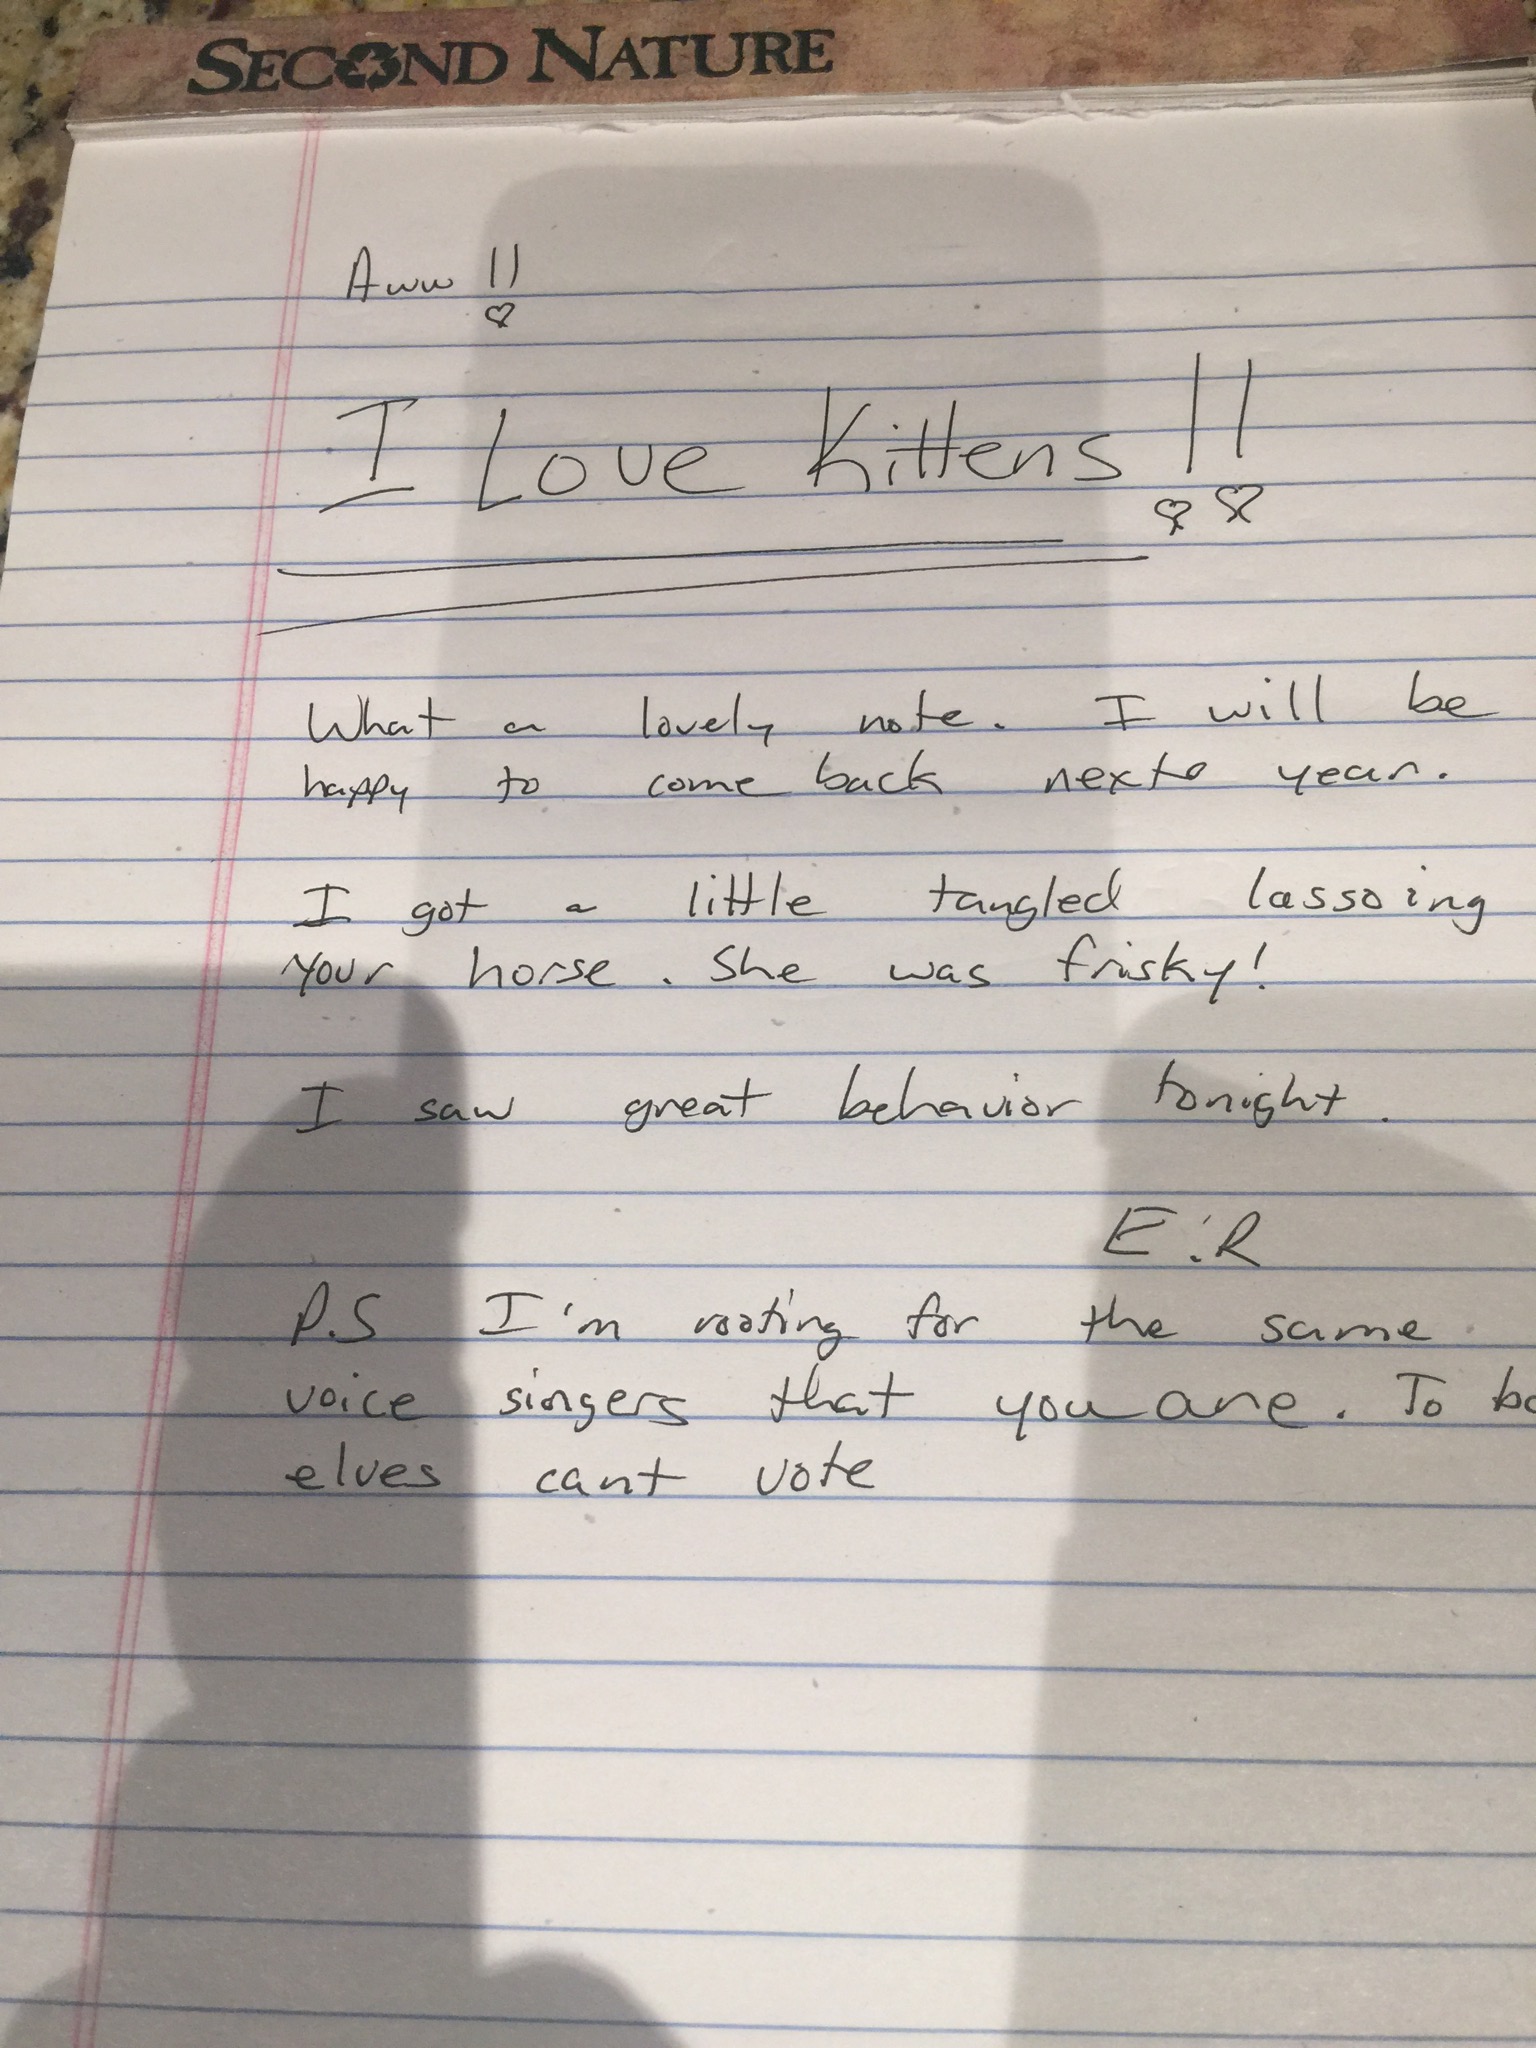 SECOND NATURE
Aww !!
I Love Kittens !!
What a lovely note. I will be
happy to come back next year.
I got a little tangled lassoing
your horse. She was frisky!
I saw great behavior tonight.
E.R
P.S I'm rooting for the same
voice singers that you are. To
elves cant vote